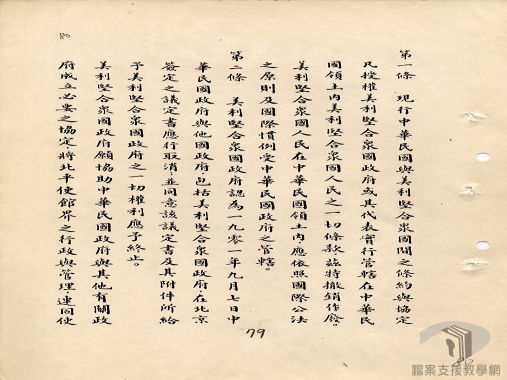 80
第一條　現行中華民國與美利堅合眾國間之條約與協定
凡授權美利堅合眾國政府或其代表實行管轄在中華民
國領土內美利堅合眾國人民之一切條款、茲特撤銷作廢。
美利堅合眾國人民在中華民國領土內應依照國際公法
之原則及國際慣例受中華民國政府之管轄。
第二條　美利堅合眾國政府認為一九〇一年九月七日中
華民國政府與他國政府包括美利堅合眾國政府在北京
簽定之議定書應行取消、並同意該議定書及其附件所給
予美利堅合眾國政府之一切權利應予終止。
美利堅合眾國政府願協助中華民國政府與其他有關政
府成立必要之協定將北平使館界之行政與管理、連同使
79
檔案支援教學網